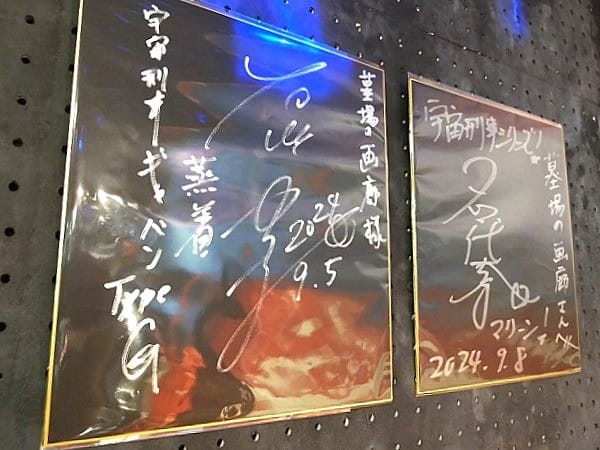 墓場の画廊様
2024
9.5
蒸着
宇宙刑事ギャバン TypeG
墓場の画廊さんへ
宇宙刑事シリーズ!
マリーン!
2024.9.8